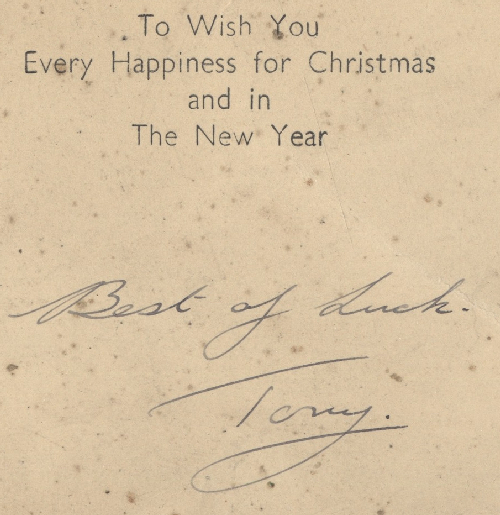 To Wish You
Every Happiness for Christmas
and in
The New Year
Best of Luck.
Tony.